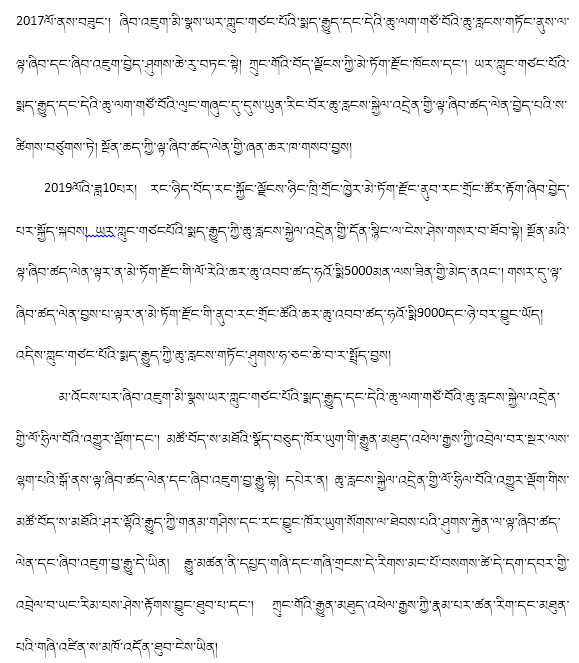 2017ལོ་ནས་བཟུང་། ཞིབ་འཇུག་མི་སྣས་ཡར་ཀླུང་གཙང་པོའི་སྨད་རྒྱུད་དང་དེའི་ཆུ་ལག་གཙོ་བོའི་ཆུ་རླངས་གཏོང་ནུས་ལ་
ལྟ་ཞིབ་དང་ཞིབ་འཇུག་བྱེད་ཤུགས་ཆེ་རུ་བཏང་སྟེ། ཀྲུང་གོའི་བོད་ལྗོངས་ཀྱི་མེ་ཏོག་རྫོང་ཁོངས་དང་། ཡར་ཀླུང་གཙང་པོའི་
སྨད་རྒྱུད་དང་དེའི་ཆུ་ལག་གཙོ་བོའི་ལུང་གཞུང་དུ་དུས་ཡུན་རིང་བོར་ཆུ་རླངས་སྐྱེལ་འདྲེན་གྱི་ལྟ་ཞིབ་ཚད་ལེན་བྱེད་པའི་ས་
ཚིགས་བཙུགས་ཏེ། སྔོན་ཆད་ཀྱི་ལྟ་ཞིབ་ཚད་ལེན་གྱི་ཞན་ཆར་ཁ་གསབ་བྱས།
2019ལོའི་ཟླ10པར། རང་ཉིད་བོད་རང་སྐྱོང་ལྗོངས་ཉིང་ཁྲི་གྲོང་ཁྱེར་མེ་ཏོག་རྫོང་ནུབ་རང་གྲོང་ཚོར་རྟོག་ཞིབ་བྱེད་
པར་སྐྱོད་སྐབས། ཡར་ཀླུང་གཙང་པོའི་སྨད་རྒྱུད་ཀྱི་ཆུ་རླངས་སྐྱེལ་འདྲེན་གྱི་དོན་སྙིང་ལ་ངེས་ཤེས་གསར་བ་ཐོབ་སྟེ། སྔོན་མའི་
ལྟ་ཞིབ་ཚད་ལེན་ལྟར་ན་མེ་ཏོག་རྫོང་གི་ལོ་རེའི་ཆར་ཆུ་འབབ་ཚད་ཧའོ་སྨི5000མན་ལས་ཟིན་གྱི་མེད་ནའང་། གསར་དུ་ལྟ་
ཞིབ་ཚད་ལེན་བྱས་པ་ལྟར་ན་མེ་ཏོག་རྫོང་གི་ནུབ་རང་གྲོང་ཚོའི་ཆར་ཆུ་འབབ་ཚད་ཧའོ་སྨི9000དང་ཉེ་བར་བྱུང་ཡོད།
འདིས་ཀླུང་གཙང་པོའི་སྨད་རྒྱུད་ཀྱི་ཆུ་རླངས་གཏོང་ཤུགས་ཧ་ཅང་ཆེ་བ་ར་སྤྲོད་བྱས།
མ་འོངས་པར་ཞིབ་འཇུག་མི་སྣས་ཡར་ཀླུང་གཙང་པོའི་སྨད་རྒྱུད་དང་དེའི་ཆུ་ལག་གཙོ་བོའི་ཆུ་རླངས་སྐྱེལ་འདྲེན་
གྱི་ལོ་ཧྲིལ་བོའི་འགྱུར་ལྡོག་དང་། མཚོ་བོད་ས་མཐོའི་སྣོད་བཅུད་ཁོར་ཡུག་གི་རྒྱུན་མཐུད་འཕེལ་རྒྱས་ཀྱི་འབྲེལ་བར་སྔར་ལས་
ལྷག་པའི་སྒོ་ནས་ལྟ་ཞིབ་ཚད་ལེན་དང་ཞིབ་འཇུག་བྱ་རྒྱུ་སྟེ། དཔེར་ན། ཆུ་རླངས་སྐྱེལ་འདྲེན་གྱི་ལོ་ཧྲིལ་བོའི་འགྱུར་ལྡོག་གིས་
མཚོ་བོད་ས་མཐོའི་ཤར་ལྷོའི་རྒྱུད་ཀྱི་གནམ་གཤིས་དང་རང་བྱུང་ཁོར་ཡུག་སོགས་ལ་ཐེབས་པའི་ཤུགས་རྐྱེན་ལ་ལྟ་ཞིབ་ཚད་
ལེན་དང་ཞིབ་འཇུག་བྱ་རྒྱུ་དེ་ཡིན། རྒྱུ་མཚན་ནི་དཔྱད་གཞི་དང་གཞི་གྲངས་དེ་རིགས་མང་པོ་བསགས་ཚེ་དེ་དག་དབར་གྱི་
འབྲེལ་བ་ཡང་རིམ་པས་ཤེས་རྟོགས་བྱུང་ཐུབ་པ་དང་། ཀྲུང་གོའི་རྒྱུན་མཐུད་འཕེལ་རྒྱས་ཀྱི་རྣམ་པར་ཚན་རིག་དང་མཐུན་
པའི་གཞི་འཛིན་ས་མཁོ་འདོན་ཐུབ་ངེས་ཡིན།